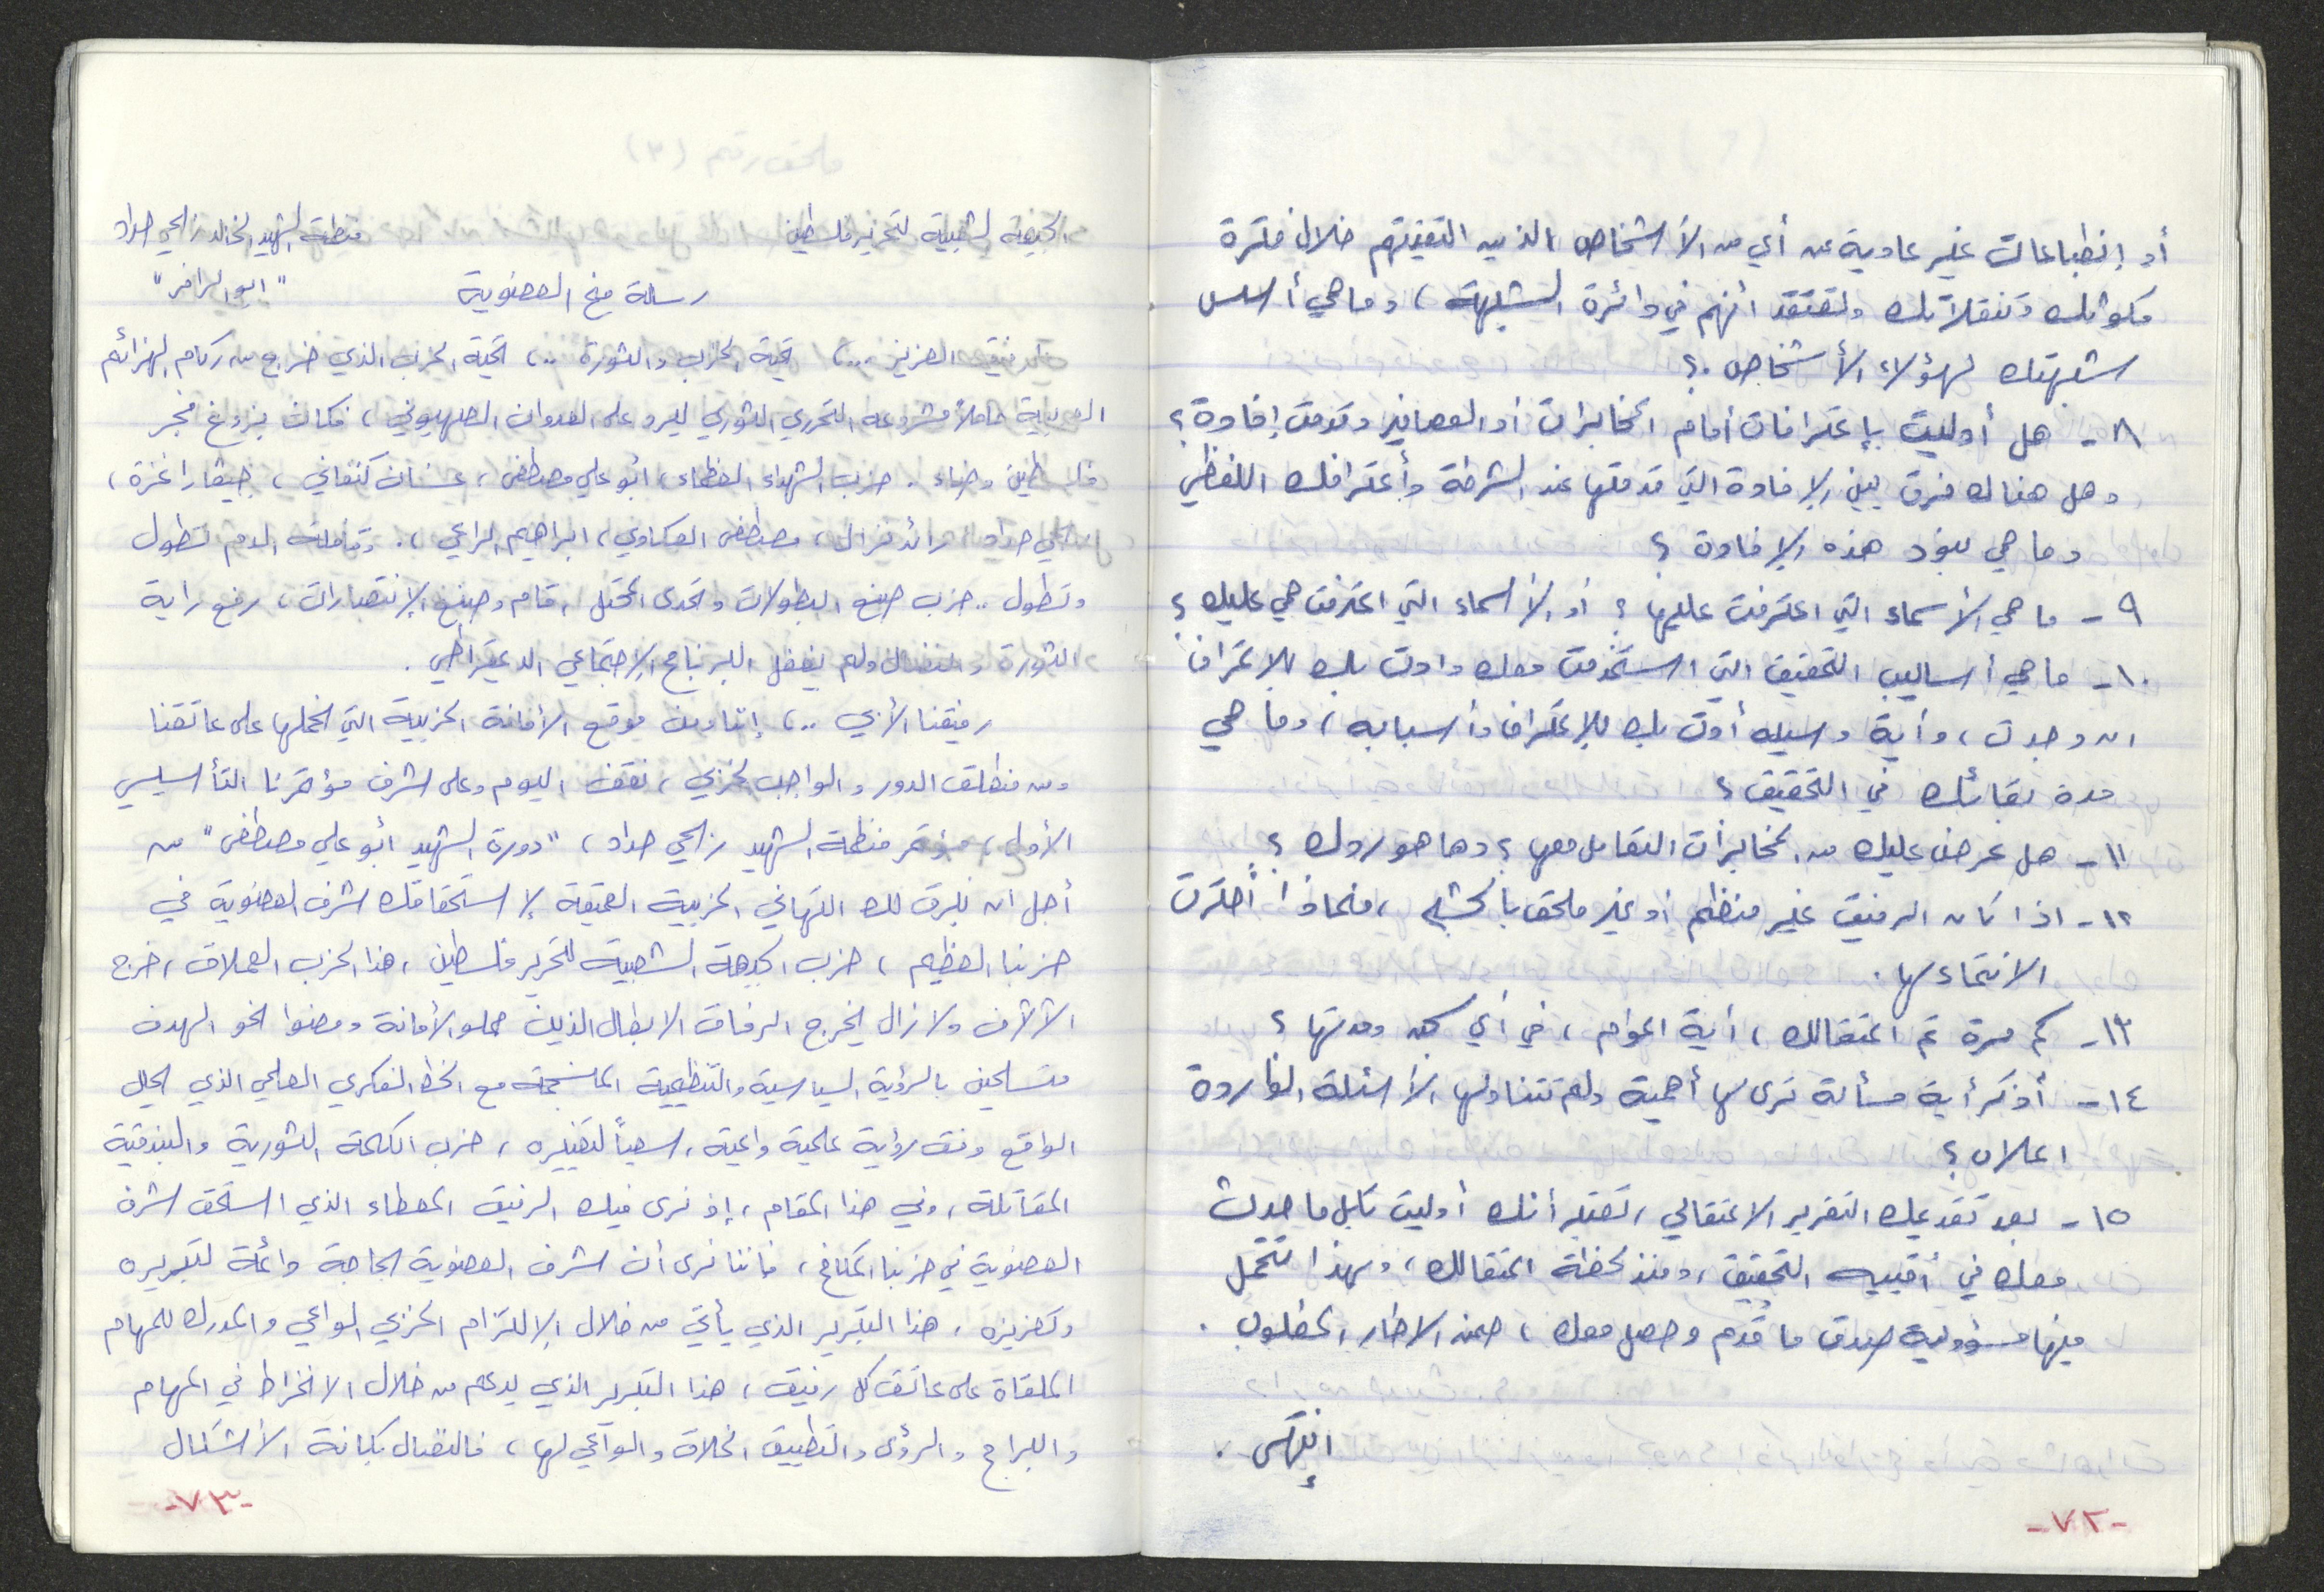 أو إنطباعات غير عادية عن أي من الأشخاص الذين التقيتهم خلال فترة
مكوثك وتنقلاتك وتعتقد أنهم في دائرة الشبهة، وما هي أسس
شبهتك لهؤلاء الأشخاص.؟
٨- هل أدليت بإعترافات أمام المخابرات أو العصافير وقدمت إفادة؟
وهل هناك فرق بين الإفادة التي قدمتها عند الشرطة وأعترافك اللفظي
وما هي بنود هذه الإفادة؟
٩- ما هي الأسماء التي اعترفت عليها؟ أو الأسماء التي اعترفت هي عليك؟
١٠- ما هي أساليب التحقيق التي استخدمت معك وادت بك للاعتراف
ان وجدت، وأية وسيله أدت بك للإعتراف وأسبابه، وما هي
مدة بقائك في التحقيق؟
١١- هل عرض عليك من المخابرات التعامل معها؟ وما هو ردك؟
١٢- اذا كان الرفيق غير منظم أو غير ملحق بالجبهة، فلماذا أخترت
الانتماء لها.
١٣- كم مرة تم اعتقالك، أية اعوام، في أي سجن ومدتها؟
١٤- أذكر أية مسألة ترى لها أهمية ولم تتناولها الأسئلة الواردة
اعلاه؟
١٥- بعد تقديمك التقرير الاعتقالي، تعتبر أنك أدليت بكل ما حدث
معك في أقبيه التحقيق، ومنذ لحظة اعتقالك، وبهذا تتحمل
فيها مسؤولية صدق ما قدم وحصل معك، ضمن الاطار المطلوب.
إنتهى.
-٧٢-
ملحق رقم (٣)
الجبهة الشعبية لتحرير فلسطين منظمة الشهيد الخالد رالحي حداد
رسالة منح العضوية "ابو الرامز"
رفيقي العزيز ...، تحية الحزب والثورة ..، تحية الحزب الذي خرج من ركام الهزائم
العربية حاملاً مشروعه التحرري الثوري ليرد على العدوان الصهيوني، فكان بزوغ فجر
فلسطين وضاء. حزب الشهداء العظماء، أبو علي مصطفى، غسان كنفاني، جيفارا غزة،
حداد، رائد نزال، مصطفى العكاوي، ابراهيم الراعي،. وقافلة الدم تطول
وتطول.. حزب صنع البطولات وتحدى المحتل، قام وصنع الإنتصارات، رفع راية
الثورة والنضال ولم يغفل البرنامج الإجتماعي الديمقراطي.
رفيقنا الأبي ..، إننا ومن موقع الأمانة الحزبية التي نحملها على عاتقنا
ومن منطلق الدور والواجب الحزبي، نقف اليوم وعلى شرف مؤتمرنا التأسيسي
الأول، مؤتمر منظمة الشهيد رالحي حداد، "دورة الشهيد أبو علي مصطفى" من
أجل ان نبرق لك التهاني الحزبية العميقة لإستحقاقك شرف العضوية في
حزبنا العظيم، حزب الجبهة الشعبية لتحرير فلسطين، هذا الحزب العملاق، خرج
الآلاف ولازال يخرج الرفاق الابطال الذين حملو الأمانة ومضوا نحو الهدف
متسلحين بالرؤية السياسية والتنظيمية المنسجمة مع الخط الفكري العلمي الذي يحلل
الواقع وفق رؤية علمية واعية، سعياً لتغييره، حزب الكلمة الثورية والبندقية
المقاتلة، وفي هذا المقام، إذ نرى فيك الرفيق المعطاء الذي استحق شرف
العضوية في حزبنا المكافح، فاننا نرى أن شرف العضوية بحاجة دائمة لتبريره
وتعزيزه، هذا التبرير الذي يأتي من خلال الإلتزام الحزبي الواعي والمدرك للمهام
الملقاة على عاتق كل رفيق، هذا التبرير الذي يدعم من خلال الانخراط في المهام
والبرامج والرؤى والتطبيق الخلاق والواعي لها، فالنضال بكافة الأشكال
-٧٣-